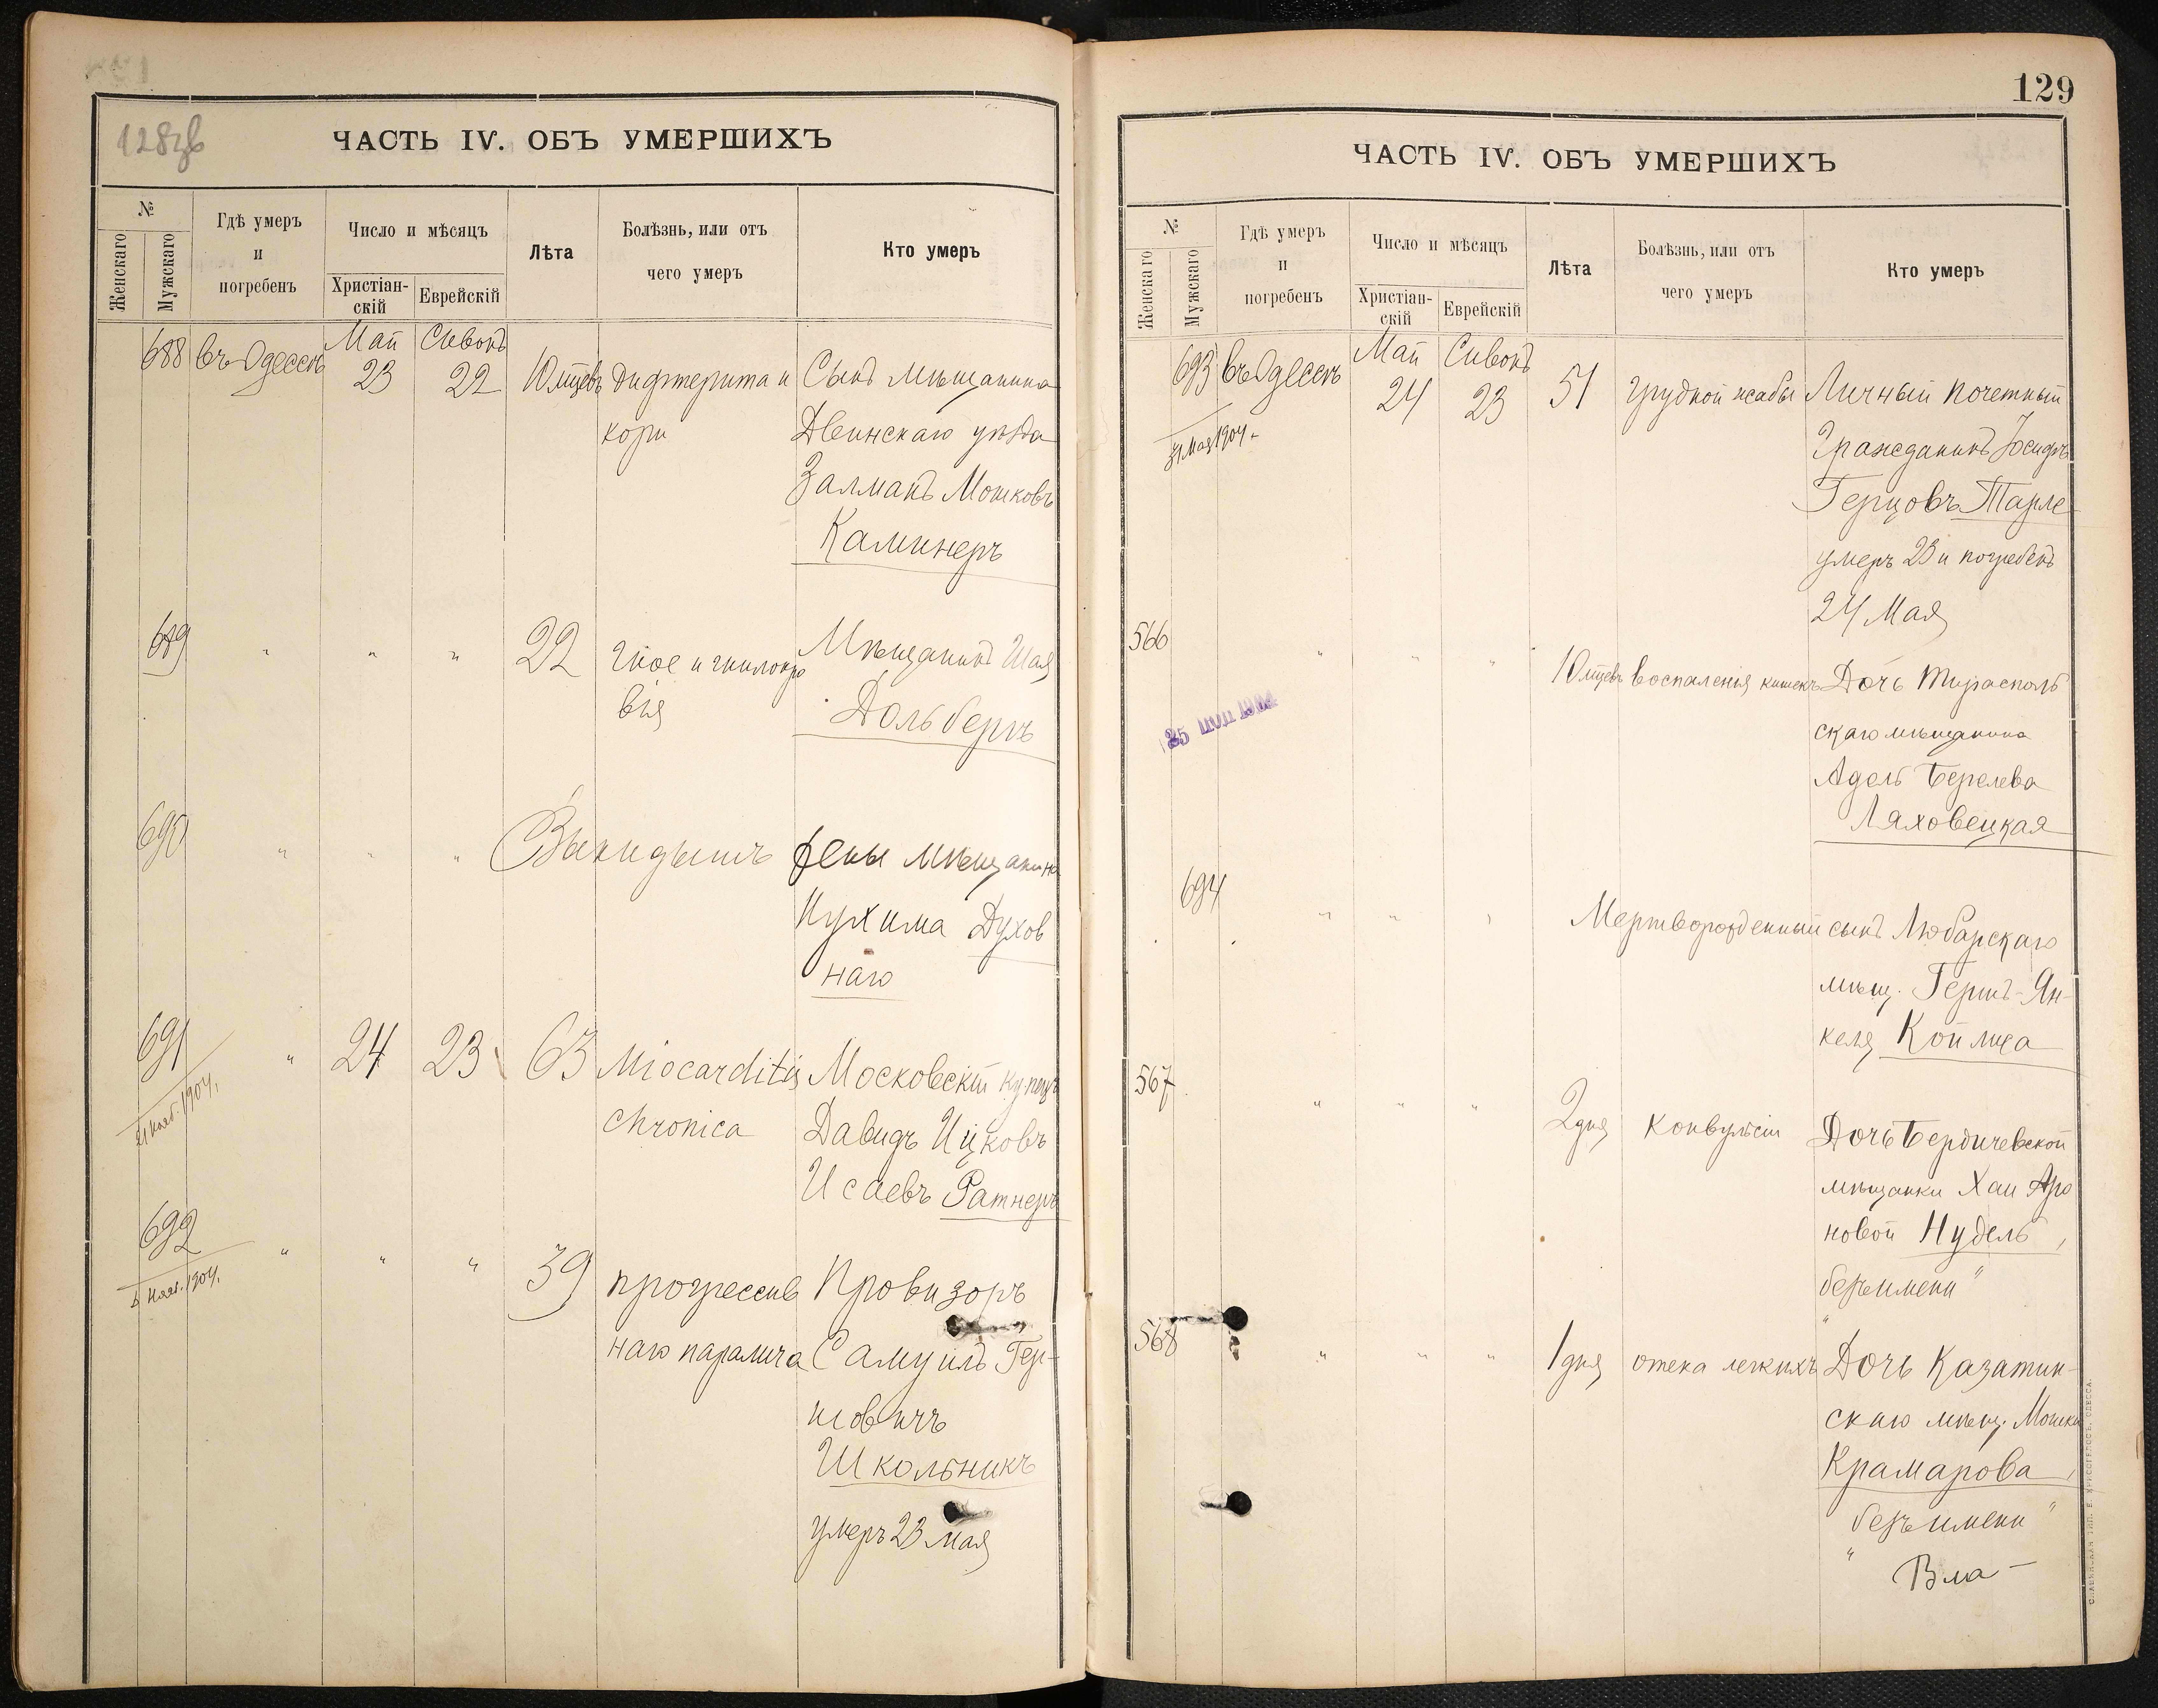 128об
ЧАСТЬ IV. ОБЪ УМЕРШИХЪ
№
Женскаго
Мужскаго
Гдѣ умеръ
и
погребенъ
Число и мѣсяцъ
Христіан-
скій
Еврейскій
Лѣта
Болѣзнь, или отъ
чего умеръ
Кто умеръ
688 въ Одессѣ Май 23 Сивонъ 22 10 мцевъ Дифтерита и Сынъ мѣщанина
кори Двинскаго уѣзда
Залманъ Мошковъ
Каминеръ
689 " " " 22 гное и гнилокро Мѣщанинъ Шая
вія Дольбергъ
690 " " " Выкидышъ жены мѣщанина
Нухима Духов
наго
691 " 24 23 63 Miocarditis Московскій купецъ
21 Нояб. 1904. chronica Давидъ Ицковъ
Исаевъ Ратнеръ
692 " " " 39 прогрессив Провизоръ
Нояб. 1904. наго паралича Самуилъ Гер-
шовичъ
Школьникъ
умеръ 23 мая
129
ЧАСТЬ IV. ОБЪ УМЕРШИХЪ
№
Женскаго
Мужскаго
Гдѣ умеръ
и
погребенъ
Число и мѣсяцъ
Христіан-
скій
Еврейскій
Лѣта
Болѣзнь, или отъ
чего умеръ
Кто умеръ
693 въ Одессѣ Май 24 Сивонъ 23 51 грудной жабы Личный почетный
31 Мая 1904 г. Гражданинъ Іосифъ
Герцовъ Тарле
умеръ 23 и погребенъ
24 Мая
566 " " " 10 мцевъ воспаленія кишекъ Дочь Тирасполь
25 1904 скаго мѣщанина
Адель Берелева
Ляховецкая
694 " " " Мертворожденный сынъ Любарскаго
мѣщ. Гершъ-Ян-
келя Койлиса
567 " " " 2 дня Конвульсіи Дочь Бердичевской
мѣщанки Хаи Аро
новой Нудель,
"безъ имени"
568 " " " 1 дня отека легкихъ Дочь Казатин-
скаго мѣщ. Мошки
Крамарова,
"безъ имени"
СЛАВЯНСКАЯ ТИП. Е. ХРИСОГЕЛОСЪ, ОДЕССА.